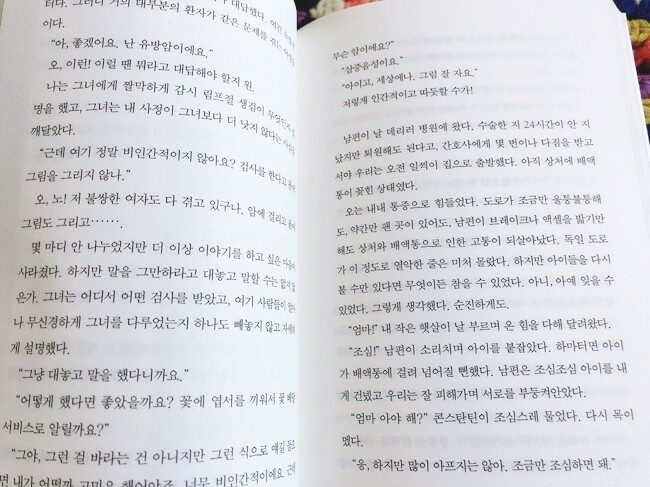 터다. 그러나 거의 대부분의 환자가 같은 문제를
이다.
"아, 좋겠어요. 난 유방암이에요."
오, 이런! 이럴 땐 뭐라고 대답해야 할지 원.
나는 그녀에게 짤막하게 감시 림프절 생검이 무엇인지
명을 했고, 그녀는 내 사정이 그녀보다 더 낫지 않다는
깨달았다.
"근데 여기 정말 비인간적이지 않아요? 검사를 한다고
그림을 그리지 않나."
오, 노! 저 불쌍한 여자도 다 겪고 있구나. 암에 걸리고
그림도 그리고……
몇 마디 안 나누었지만 더 이상 이야기를 하고 싶은 마음이
사라졌다. 하지만 말을 그만하라고 대놓고 말할 수는 없지 않
은가. 그녀는 어디서 어떤 검사를 받았고, 여기 사람들이 얼마
나 무신경하게 그녀를 다루었는지 하나도 빼놓지 않고 자세하
게 설명했다.
"그냥 대놓고 말을 했다니까요."
"어떻게 했다면 좋았을까요? 꽃에 엽서를 끼워서 꽃 배달
서비스로 알릴까요?"
"그야, 그런 걸 바라는 건 아니지만 그런 식으로 얘길 들으
면 내가 어떨까 고민은 해야죠. 너무 비인간적이에요. 근데
무슨 암이에요?"
"삼중음성이요."
"아이고, 세상에나. 그럼 잘 자요."
저렇게 인간적이고 따뜻할 수가!
남편이 날 데리러 병원에 왔다. 수술한 지 24시간이 안 지
났지만 퇴원해도 된다고, 간호사에게 몇 번이나 다짐을 받고
서야 우리는 오전 일찍이 집으로 출발했다. 아직 상처에 배액
통이 꽂힌 상태였다.
오는 내내 통증으로 힘들었다. 도로가 조금만 울퉁불퉁해
도, 약간만 팬 곳이 있어도, 남편이 브레이크나 액셀을 밟기만
해도 상처와 배액통으로 인한 고통이 되살아났다. 독일 도로
가 이 정도로 열악한 줄은 미처 몰랐다. 하지만 아이들을 다시
볼 수만 있다면 무엇이든 참을 수 있었다. 아니, 아예 잊을 수
있었다. 그렇게 생각했다. 순진하게도.
"엄마!" 내 작은 햇살이 날 부르며 온 힘을 다해 달려왔다.
"조심!" 남편이 소리치며 아이를 붙잡았다. 하마터면 아이
가 배액통에 걸려 넘어질 뻔했다. 남편은 조심조심 아이를 내
게 건넸고 우리는 잘 피해가며 서로를 부둥켜안았다.
"엄마 아야 해?" 콘스탄틴이 조심스레 물었다. 다시 목이
멨다.
"응, 하지만 많이 아프지는 않아. 조금만 조심하면 돼."